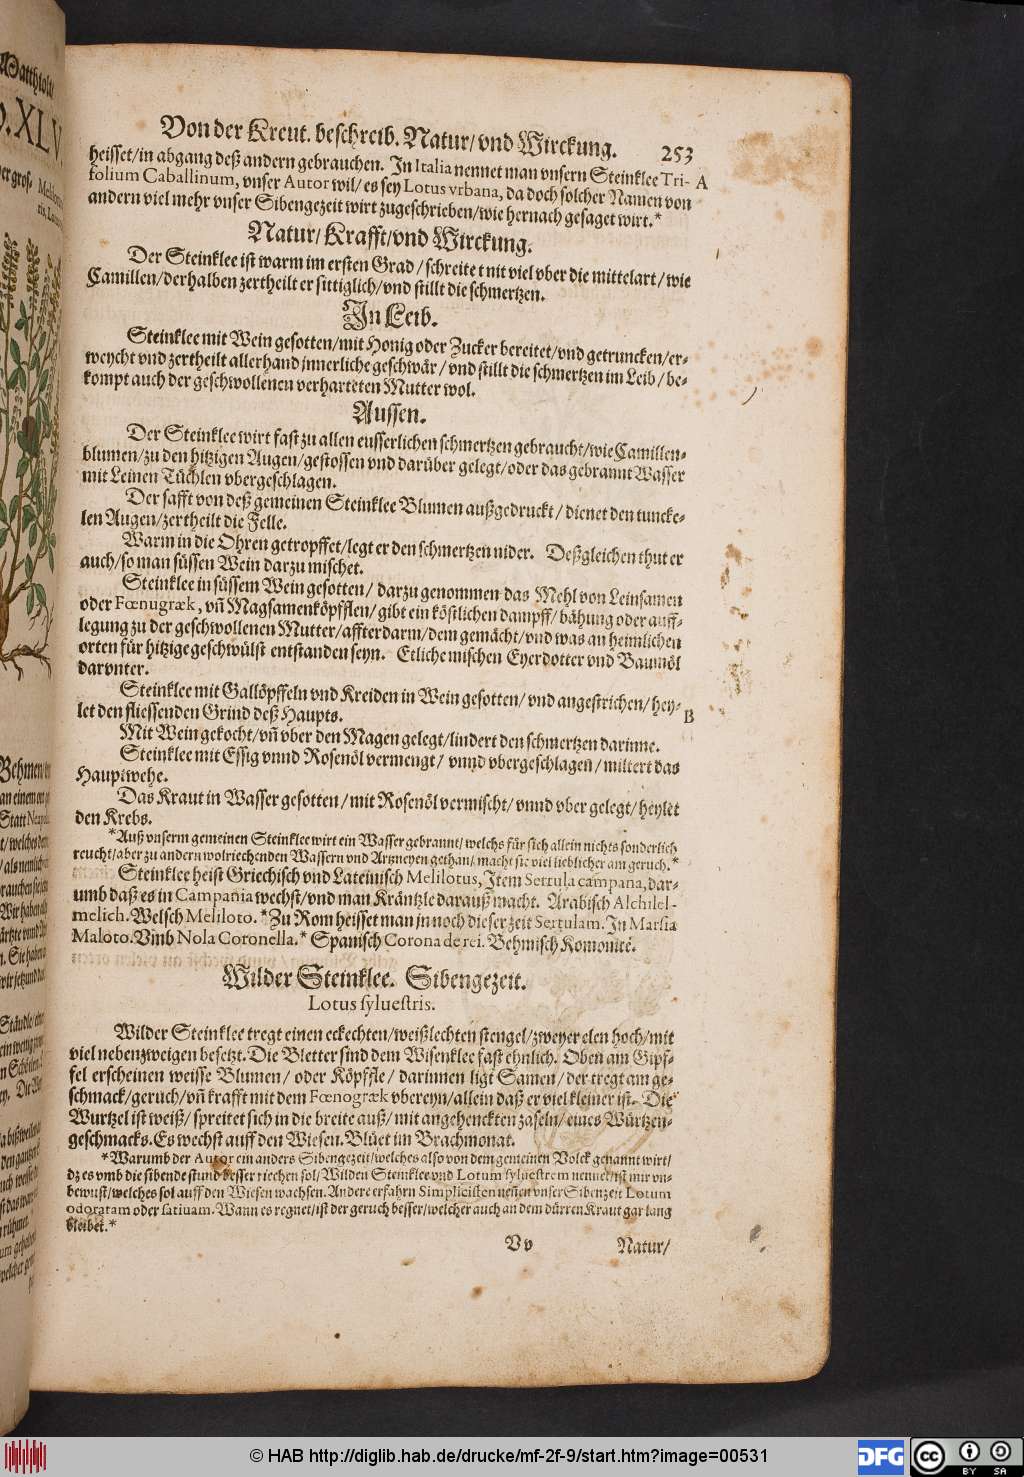 Von der Kreut. beschreib. Natur/ vnd Wirckung. 253
heisset/in abgang deß andern gebrauchen. In Italia nennet man vnsern Steinklee Tri- A
folium Caballinum, vnser Autor wil/ es sey Lotus vrbana, da doch solcher Namen von
andern viel mehr vnser Sibengezeit wirt zugeschrieben/wie hernach gesaget wirt.*
Natur/ Krafft/vnd Wirckung.
Der Steinklee ist warm im ersten Grad / schreitet nit viel vber die mittelart / wie
Camillen/derhalben zertheilt er sittiglich/vnd stillt die schmertzen.
In Leib.
Steinklee mit Wein gesotten/mit Honig oder Zucker bereitet/vnd getruncken/er-
weycht vnd zertheilt allerhand jnnerliche geschwär / vnd stillt die schmertzen im Leib / be-
kompt auch der geschwollenen verharteten Mutter wol.
Aussen.
Der Steinklee wirt fast zu allen eusserlichen schmertzen gebraucht/wie Camillen-
blumen/zu den hitzigen Augen/gestossen vnd darüber gelegt/oder das gebrannt Wasser
mit Leinen Tüchlen vbergeschlagen.
Der safft von deß gemeinen Steinklee Blumen außgedruckt / dienet den tuncke-
len Augen/zertheilt die Felle.
Warm in die Ohren getropffet/legt er den schmertzen nider. Deßgleichen thut er
auch/so man süssen Wein darzu mischet.
Steinklee in süssem Wein gesotten/ darzu genommen das Mehl von Leinsamen
oder Fœnugræk, vñ Magsamenköpfflen/ gibt ein köstlichen dampff/ bähung oder auff-
legung zu der geschwollenen Mutter/affterdarm/dem gemächt/vnd was an heimlichen
orten für hitzige geschwülst entstanden seyn. Etliche mischen Eyerdotter vnd Baumöl
darvnter.
Steinklee mit Gallöpffeln vnd Kreiden in Wein gesotten/ vnd angestrichen/ hey-
let den fliessenden Grind deß Haupts. B
Mit Wein gekocht/vñ vber den Magen gelegt/lindert den schmertzen darinne.
Steinklee mit Essig vnnd Rosenöl vermengt/ vnnd vbergeschlagen / miltert das
Hauptwehe.
Das Kraut in Wasser gesotten/ mit Rosenöl vermischt/ vnnd vber gelegt/ heylet
den Krebs.
*Auß vnserm gemeinen Steinklee wirt ein Wasser gebrannt/ welchs für sich allein nichts sonderlich
reucht/aber zu andern wolriechenden Wassern vnd Artzneyen gethan/ macht sie viel lieblicher am geruch.*
Steinklee heist Griechisch vnd Lateinisch Melilotus, Item Sertula campana, dar-
umb daß es in Campania wechst/vnd man Kräntzle darauß macht. Arabisch Alchilel-
melich. Welsch Meliloto. *Zu Rom heisset man jn noch dieser zeit Sertulam. In Marsia
Maloto. Vmb Nola Coronella.* Spanisch Corona de rei. Behmisch Komonice.
Wilder Steinklee. Sibengezeit.
Lotus syluestris.
Wilder Steinklee tregt einen eckechten/weißlechten stengel/zweyer elen hoch/mit
viel nebenzweigen besetzt. Die Bletter sind dem Wisenklee fast ehnlich. Oben am Gipf-
fel erscheinen weisse Blumen/ oder Köpffle/ darinnen ligt Samen/ der tregt am ge-
schmack/geruch/vñ krafft mit dem Fœnogræk vbereyn/allein daß er viel kleiner ist. Die
Wurtzel ist weiß/ spreitet sich in die breite auß/ mit angehenckten zaseln/ eines Würtzen-
geschmacks. Es wechst auff den Wiesen. Blüet im Brachmonat.
*Warumb der Autor ein anders Sibengezeit/welches also von dem gemeinen Volck genannt wirt/
dz es vmb die sibende stund besser riechen sol/ Wilden Steinklee vnd Lotum syluestrem nennet/ist mir vn-
bewust/welches sol auff den Wiesen wachsen. Andere erfahrn Simplicisten neñen vnser Sibenzeit Lotum
odoratam oder satiuam. Wann es regnet/ist der geruch besser/welcher auch an dem dürren Kraut gar lang
bleibet.*
Vv Natur/
© HAB http://diglib.hab.de/drucke/mf-2f-9/start.htm?image=00531
DFG
cc BY SA